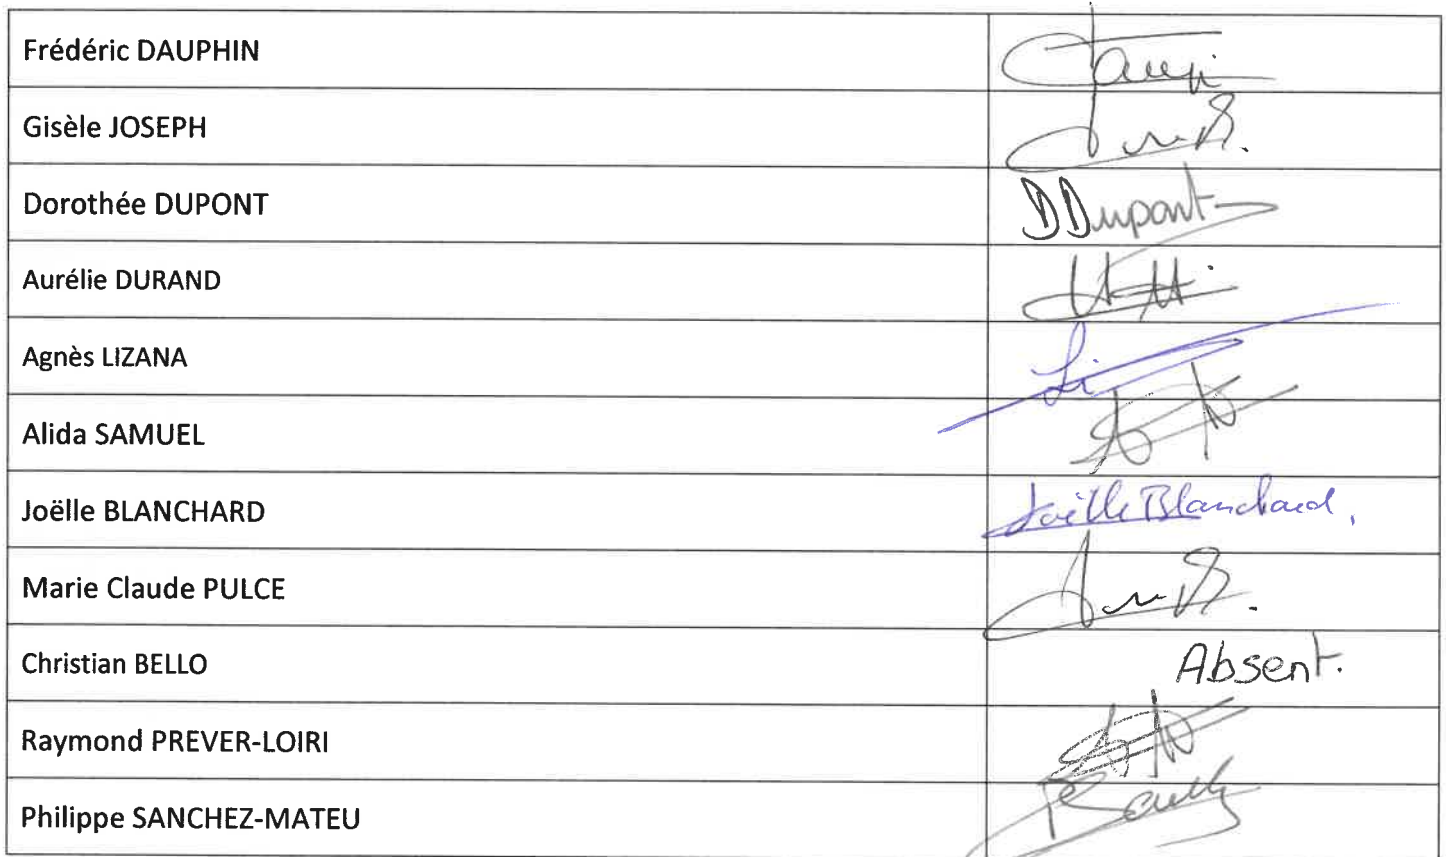 Frédéric DAUPHIN
Gisèle JOSEPH
Dorothée DUPONT DDupont
Aurélie DURAND
Agnès LIZANA Li
Alida SAMUEL
Joëlle BLANCHARD Joëlle Blanchard,
Marie Claude PULCE
Christian BELLO Absent.
Raymond PREVER-LOIRI
Philippe SANCHEZ-MATEU